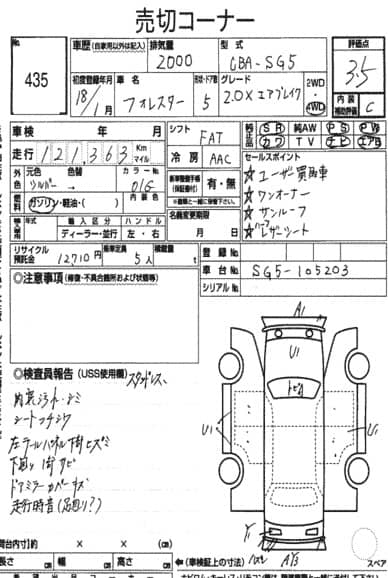 売切コーナー
No.
435
車歴(自家用以外は記入)
排気量
2000
型式
CBA-SG5
評価点
3.5
初度登録年月
18/1月
車名
フォレスター
ドア数
5
グレード
2.0X エアブレイク
2WD
4WD
内装補助評価
C
車検 年 月
走行 121,363 Km マイル
シフト
FAT
純正品
SR 純AW PS PW
カワ TV ナビ エアB
外色
シルバー
色替
カラーNo.
01G
冷房
AAC
セールスポイント
☆ユーザー買取車
☆ワンオーナー
☆サンルーフ
☆レザーシート
燃料
ガソリン・軽油・( )
内装色
新車整備手帳(保証書付)
有・無
輸入区分
ハンドル
ディーラー・並行
左・右
名義変更期限
月 日
リサイクル預託金
12710円
乗車定員
5人
積載量
t
登録No.
車台No.
SG5-105203
シリアルNo.
◎注意事項(修復・不具合箇所および状態等)
◎検査員報告(USS使用欄)
スタッドレス
内装汚れ・シミ
左テールパネル下部ヒズミ
下廻り1部サビ
ドアミラーカバーキズ
走行時音(足廻り?)
A1
U1
トビA
U1
U1
Y1
長さ cm
幅 cm
高さ cm
(車検証上の寸法)